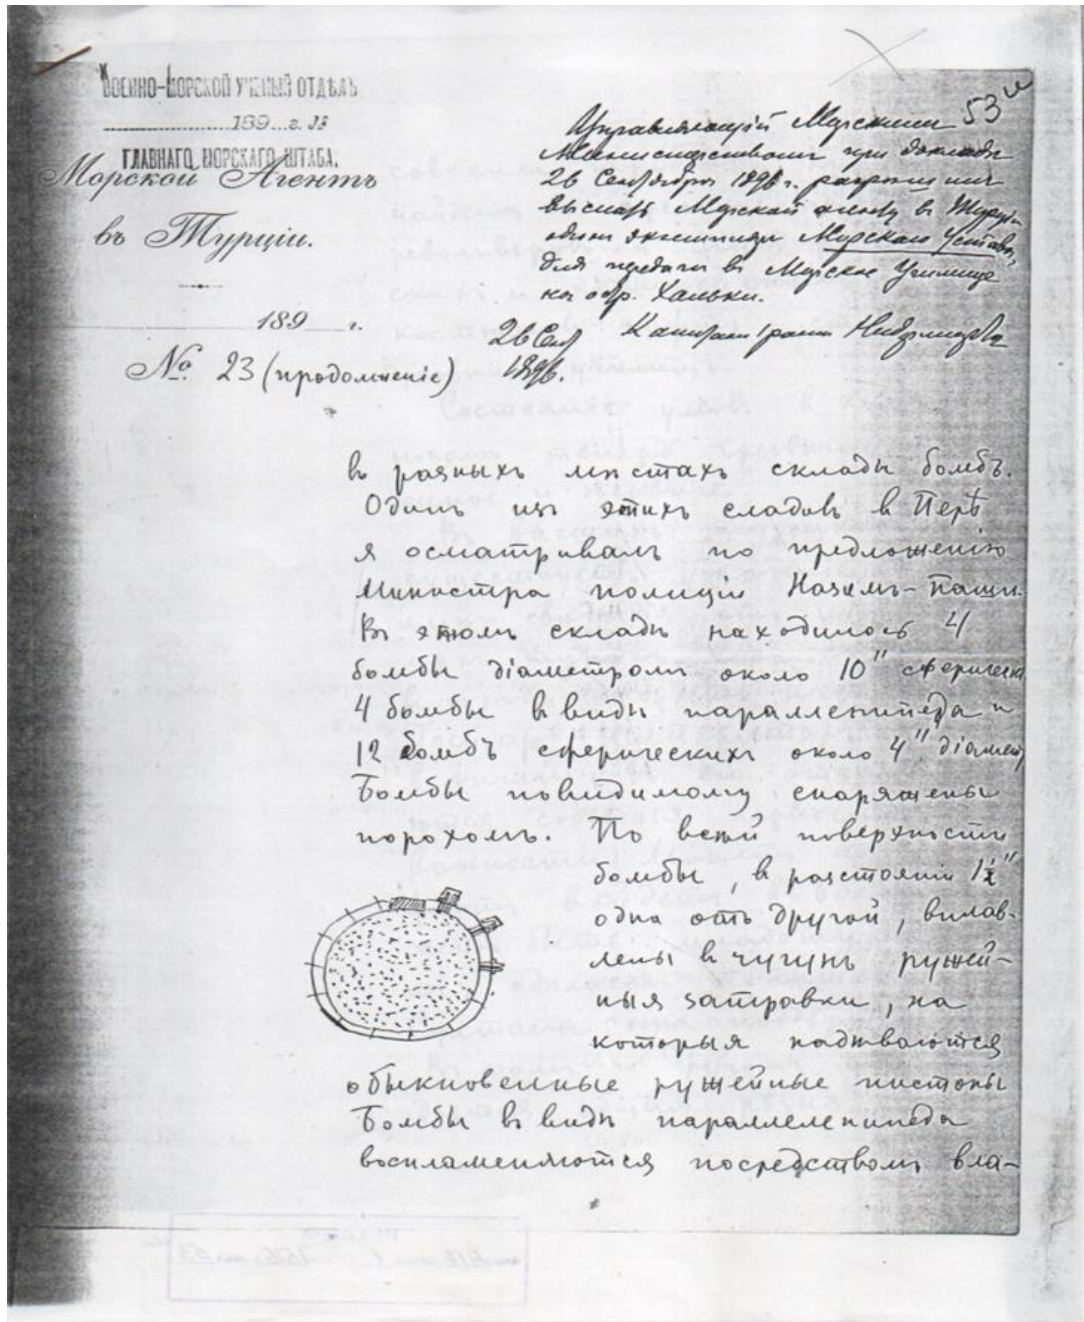 Военно-Морской Ученый Отдѣлъ
189 г. №
Главнаго Морскаго Штаба.
Морской Агентъ
въ Турціи.
189 г.
№ 23 (продолженіе)
53
Управляющій Морскимъ
Министерствомъ при докладѣ
26 Сентября 1896 г. разрѣшилъ
выслать Морской агенту в Турции
один экземпляр Морскаго Устава,
для передачи в Морское Училище
на остр. Хальки.
26 Сент Капитан I ранга
1896.
в разныхъ мѣстахъ склады бомбъ.
Одинъ изъ этихъ сладовъ в Перѣ
я осматривалъ по предложенію
Министра полиціи Наземъ-паши.
Въ этомъ складѣ находилось 4
бомбы діаметромъ около 10" сферическ
4 бомбы в видѣ параллепипеда и
12 бомбъ сферическихъ около 4" діамет
Бомбы повидимому снаряжены
порохомъ. По всей поверхности
бомбы, в разстояніи 1½"
одна отъ другой, вплав-
лены в чугунъ ружей-
ныя затравки, на
которыя надѣваются
обыкновенные ружейные пистоны
Бомбы в видѣ параллелепипеда
воспламеняются посредствомъ вла-